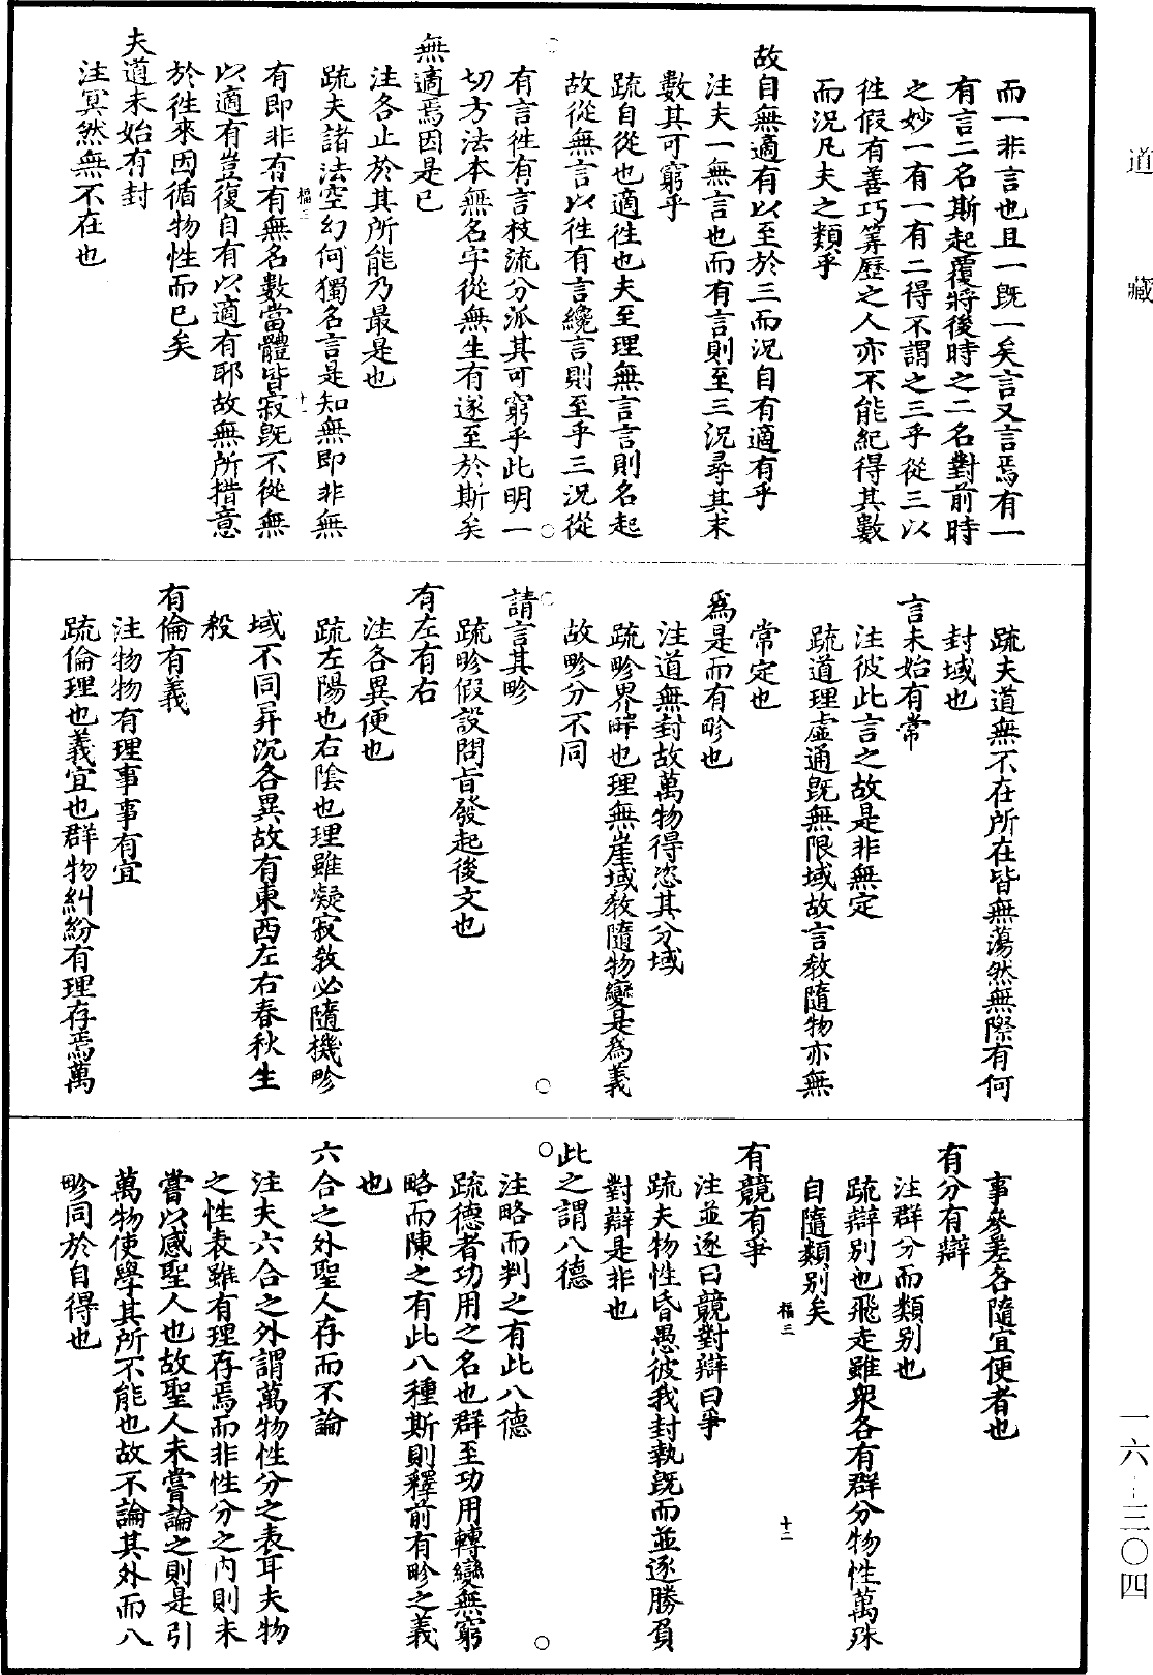 道藏
而一非言也且一旣一矣言又言焉有一
有言二名斯起覆將後時之二名對前時
之妙一有一有二得不謂之三乎從三以
徃假有善巧筭曆之人亦不能紀得其數
而況凡夫之類乎
故自無適有以至於三而況自有適有乎
注夫一無言也而有言則至三況尋其末
數其可窮乎
疏自從也適徃也夫至理無言言則名起
故從無言以徃有言纔言則至乎三況從
有言徃有言枝流分派其可窮乎此明一
切方法本無名字從無生有遂至於斯矣
無適焉因是已
注各止於其所能乃最是也
疏夫諸法空幻何獨名言是知無即非無
福三
十一
有即非有有無名數當體皆寂旣不從無
以適有豈復自有以適有耶故無所措意
於徃來因循物性而已矣
夫道未始有封
注冥然無不在也
疏夫道無不在所在皆無蕩然無際有何
封域也
言未始有常
注彼此言之故是非無定
疏道理虛通旣無限域故言教隨物亦無
常定也
爲是而有畛也
注道無封故萬物得恣其分域
疏畛界畔也理無崖域教隨物變是爲義
故畛分不同
請言其畛
疏畛假設問旨發起後文也
有左有右
注各異便也
疏左陽也右陰也理雖凝寂教必隨機畛
域不同昇沉各異故有東西左右春秋生
殺
有倫有義
注物物有理事事有宜
疏倫理也義宜也群物糾紛有理存焉萬
事參差各隨宜便者也
有分有辯
注群分而類别也
疏辯别也飛走雖衆各有群分物性萬殊
自隨類别矣
福三
十二
有競有爭
注並逐曰競對辯曰爭
疏夫物性昏愚彼我封執旣而並逐勝負
對辯是非也
此之謂八德
注略而判之有此八德
疏德者功用之名也群至功用轉變無窮
略而陳之有此八種斯則釋前有畛之義
也
六合之外聖人存而不論
注夫六合之外謂萬物性分之表耳夫物
之性表雖有理存焉而非性分之内則未
嘗以感聖人也故聖人未嘗論之則是引
萬物使學其所不能也故不論其外而八
畛同於自得也
一六--三〇四